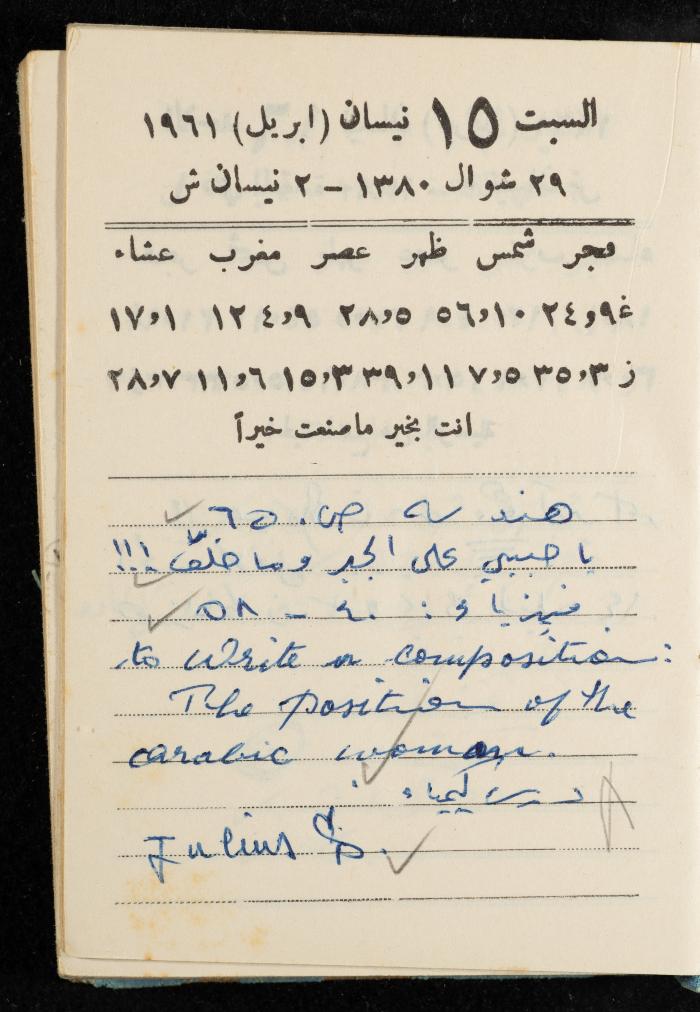 السبت ١٥ نيسان (ابريل) ١٩٦١
٢٩ شوال ١٣٨٠ – ٢ نيسان ش
فجر شمس ظهر عصر مغرب عشاء
غ ٩و٢٤ ١٠و٥٦ ٥و٢٨ ٩و٤ ١٢ ١و١٧
ز ٣و٣٥ ٥و٧ ١١و٣٩ ٣و١٥ ٦و١١ ٧و٢٨
انت بخير ما صنعت خيراً
هندسه ص. ٦٥
يا حبيبي على الجبر وما خلّف !!!
فيزياء : ٤٠ – ٥٨
to write a composition:
The position of the
arabic woman.
درس كيمياء
Julius